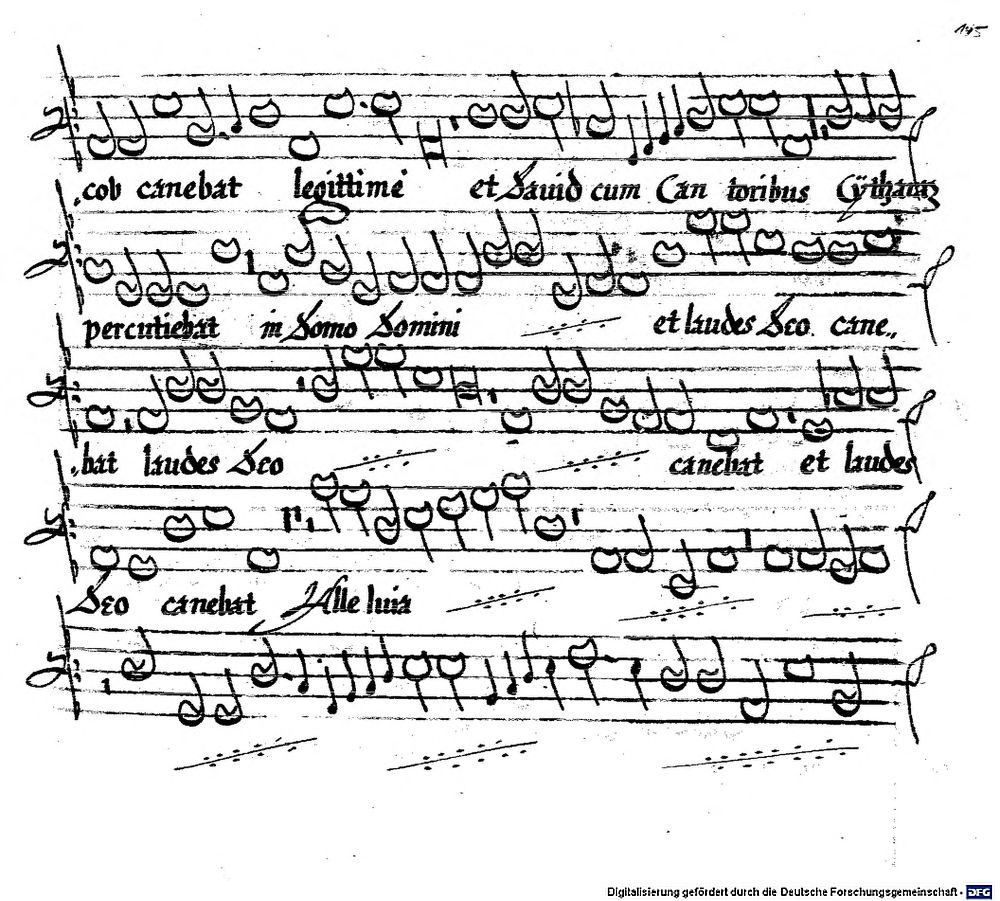 145
cob canebat legittime et Dauid cum Can toribus Cÿtharaz
percutiebat in Domo Domini et laudes Deo cane„
bat laudes Deo canebat et laudes
Deo canebat Alle luia
Digitalisierung gefördert durch die Deutsche Forschungsgemeinschaft - DFG